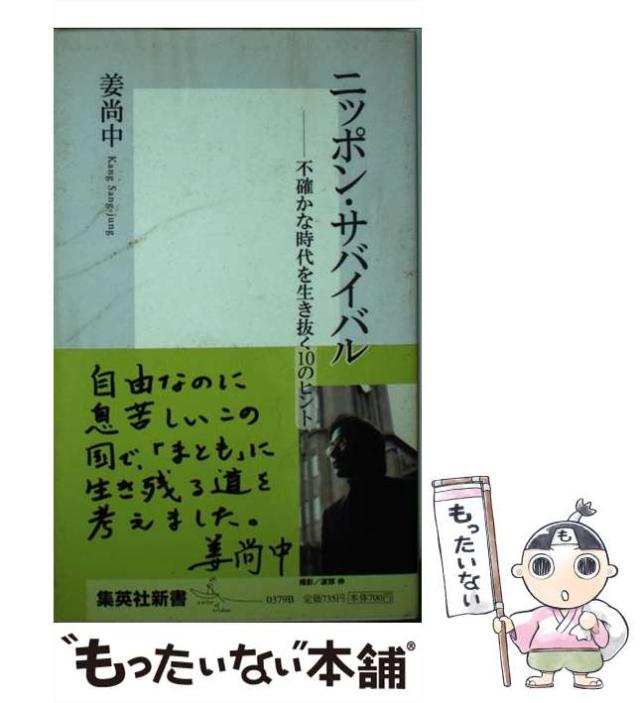 ニッポン・サバイバル
──不確かな時代を生き抜く10のヒント
姜尚中
Kang Sang-jung
自由なのに
息苦しいこの
国で、「まとも」に
生き残る道を
考えました。
姜尚中
撮影/渡部 伸
集英社新書
0379B 定価735円 本体700円
もったいない
“もったいない”本舗®